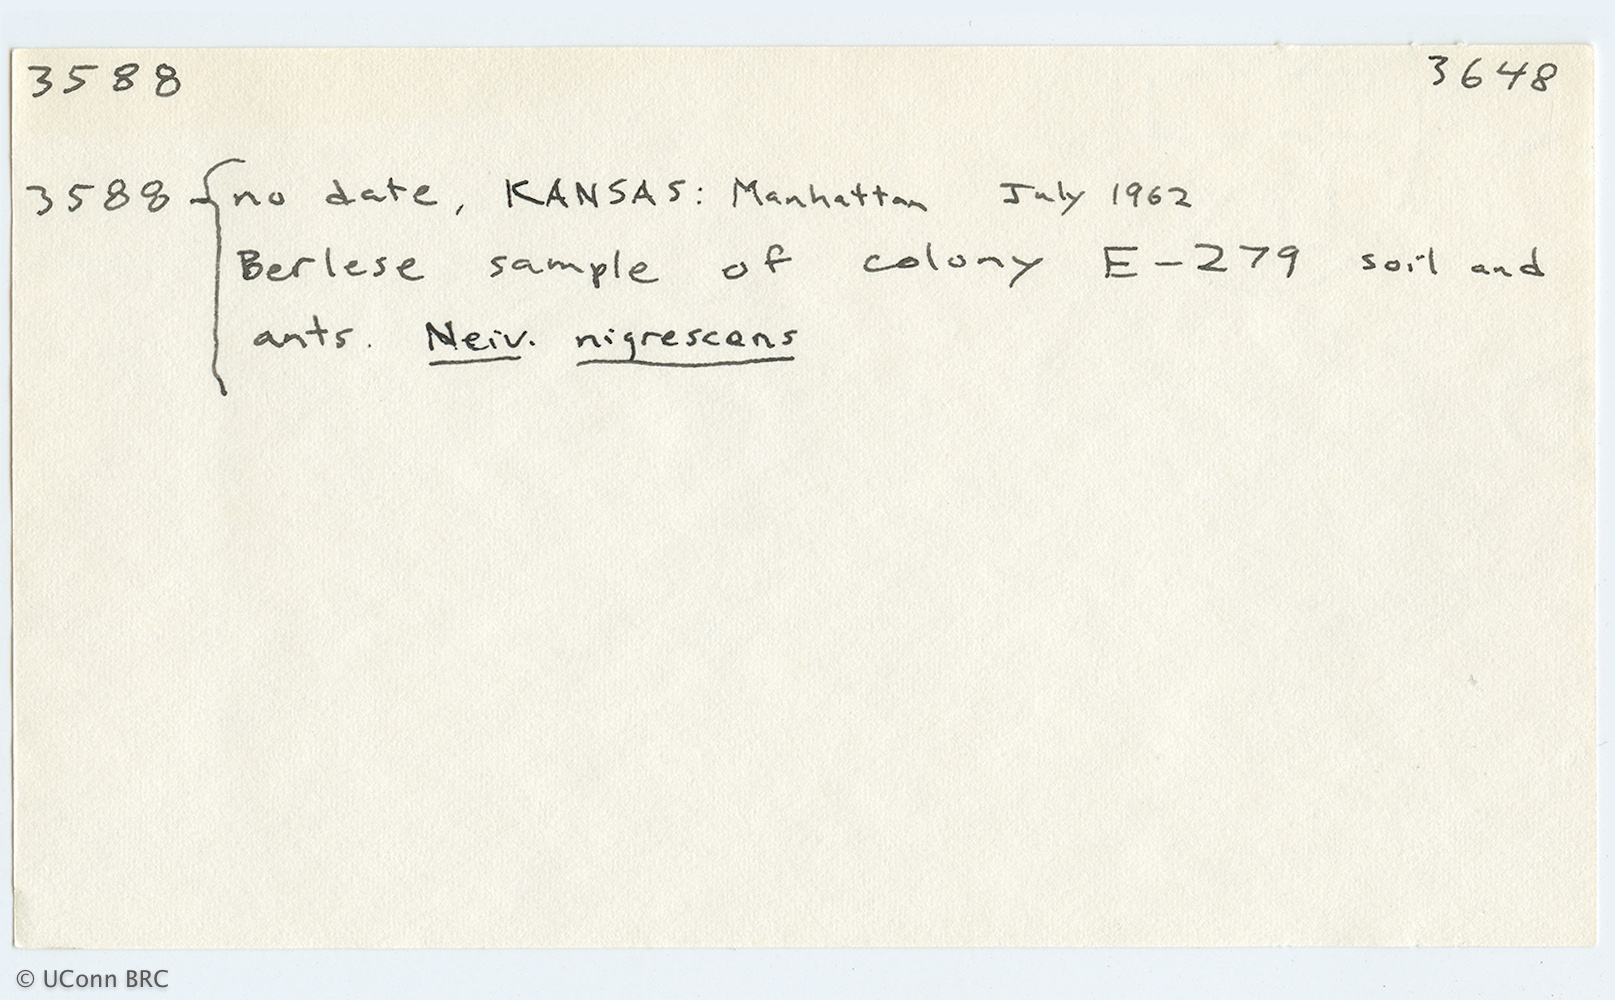 3588 3648
3588 { no date, KANSAS: Manhattan July 1962
Berlese sample of colony E-279 soil and
ants. Neiv. nigrescens
© UConn BRC